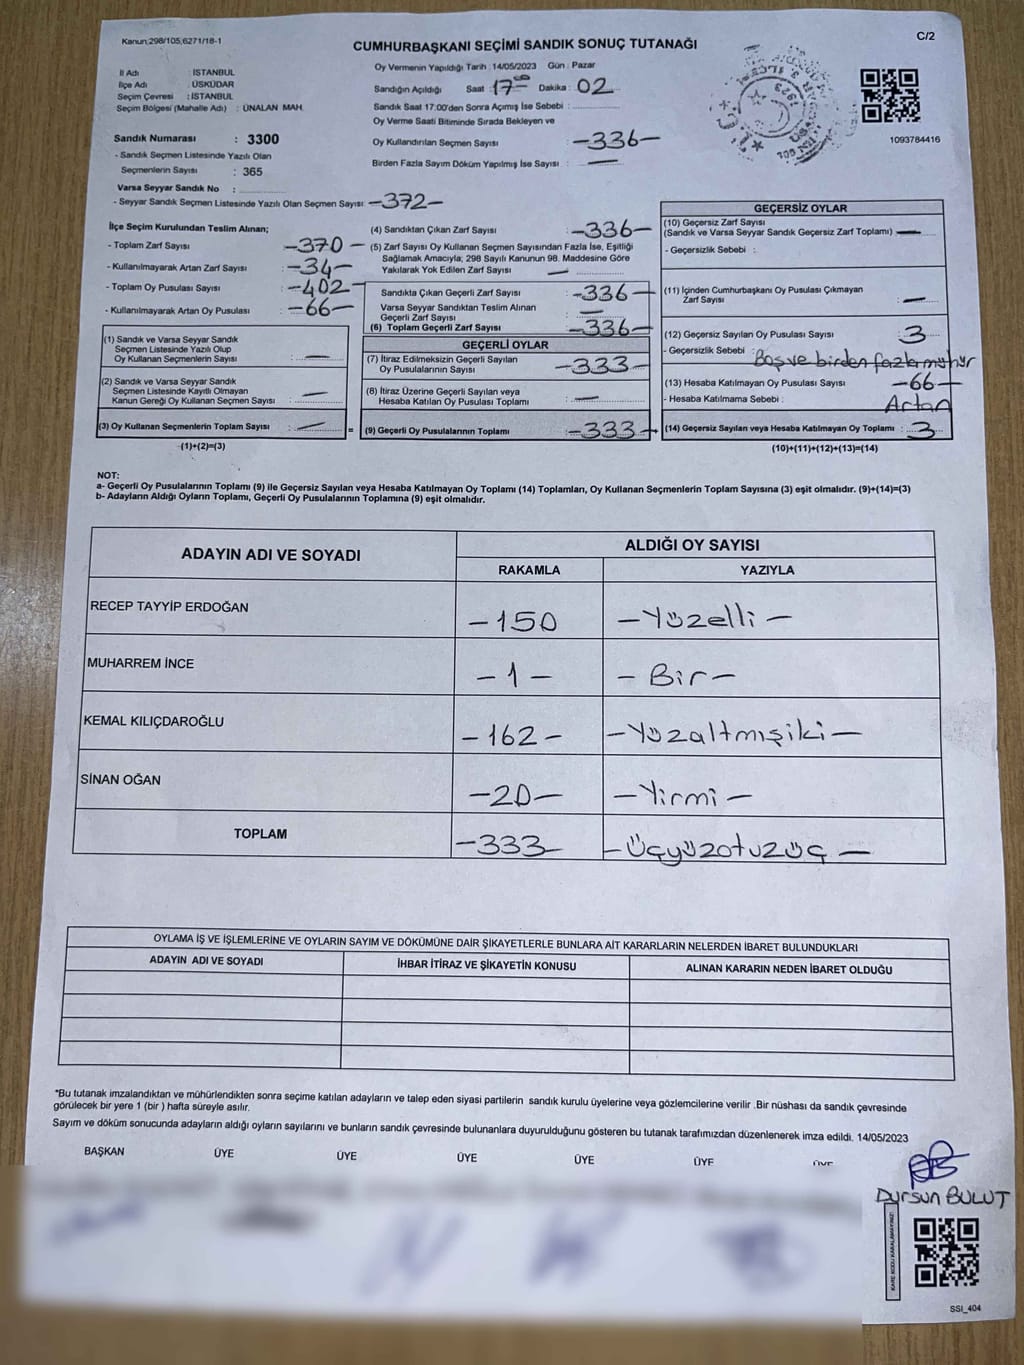 Kanun:298/105,6271/18-1
C/2
CUMHURBAŞKANI SEÇİMİ SANDIK SONUÇ TUTANAĞI
İl Adı : İSTANBUL
İlçe Adı : ÜSKÜDAR
Seçim Çevresi : İSTANBUL
Seçim Bölgesi (Mahalle Adı) : ÜNALAN MAH.
Sandık Numarası : 3300
- Sandık Seçmen Listesinde Yazılı Olan
Seçmenlerin Sayısı : 365
Varsa Seyyar Sandık No :
- Seyyar Sandık Seçmen Listesinde Yazılı Olan Seçmen Sayısı: -372-
Oy Vermenin Yapıldığı Tarih : 14/05/2023 Gün : Pazar
Sandığın Açıldığı Saat : 17 Dakika : 02
Sandık Saat 17:00'den Sonra Açımış İse Sebebi :
Oy Verme Saati Bitiminde Sırada Bekleyen ve
Oy Kullandırılan Seçmen Sayısı : -336-
Birden Fazla Sayım Döküm Yapılmış İse Sayısı : —
1093784416
İlçe Seçim Kurulundan Teslim Alınan;
- Toplam Zarf Sayısı : -370-
- Kullanılmayarak Artan Zarf Sayısı : -34-
- Toplam Oy Pusulası Sayısı : -402-
- Kullanılmayarak Artan Oy Pusulası : -66-
(1) Sandık ve Varsa Seyyar Sandık
Seçmen Listesinde Yazılı Olup
Oy Kullanan Seçmenlerin Sayısı : —
(2) Sandık ve Varsa Seyyar Sandık
Seçmen Listesinde Kayıtlı Olmayan
Kanun Gereği Oy Kullanan Seçmen Sayısı : —
(3) Oy Kullanan Seçmenlerin Toplam Sayısı : — =
(1)+(2)=(3)
(4) Sandıktan Çıkan Zarf Sayısı : -336-
(5) Zarf Sayısı Oy Kullanan Seçmen Sayısından Fazla İse, Eşitliği
Sağlamak Amacıyla; 298 Sayılı Kanunun 98. Maddesine Göre
Yakılarak Yok Edilen Zarf Sayısı : —
Sandıkta Çıkan Geçerli Zarf Sayısı : -336-
Varsa Seyyar Sandıktan Teslim Alınan
Geçerli Zarf Sayısı : —
(6) Toplam Geçerli Zarf Sayısı : -336-
GEÇERLİ OYLAR
(7) İtiraz Edilmeksizin Geçerli Sayılan
Oy Pusulalarının Sayısı : -333-
(8) İtiraz Üzerine Geçerli Sayılan veya
Hesaba Katılan Oy Pusulası Toplamı : —
(9) Geçerli Oy Pusulalarının Toplamı : -333- +
GEÇERSİZ OYLAR
(10) Geçersiz Zarf Sayısı
(Sandık ve Varsa Seyyar Sandık Geçersiz Zarf Toplamı) : —
- Geçersizlik Sebebi :
(11) İçinden Cumhurbaşkanı Oy Pusulası Çıkmayan
Zarf Sayısı : —
(12) Geçersiz Sayılan Oy Pusulası Sayısı : 3
- Geçersizlik Sebebi : Boş ve birden fazla mühür
(13) Hesaba Katılmayan Oy Pusulası Sayısı : -66-
- Hesaba Katılmama Sebebi : Artan
(14) Geçersiz Sayılan veya Hesaba Katılmayan Oy Toplamı : 3
(10)+(11)+(12)+(13)=(14)
NOT:
a- Geçerli Oy Pusulalarının Toplamı (9) ile Geçersiz Sayılan veya Hesaba Katılmayan Oy Toplamı (14) Toplamları, Oy Kullanan Seçmenlerin Toplam Sayısına (3) eşit olmalıdır. (9)+(14)=(3)
b- Adayların Aldığı Oyların Toplamı, Geçerli Oy Pusulalarının Toplamına (9) eşit olmalıdır.
ADAYIN ADI VE SOYADI
ALDIĞI OY SAYISI
RAKAMLA YAZIYLA
RECEP TAYYİP ERDOĞAN -150 -Yüzelli-
MUHARREM İNCE -1- -Bir-
KEMAL KILIÇDAROĞLU -162- -Yüzaltmışiki-
SİNAN OĞAN -20- -Yirmi-
TOPLAM -333- -Üçyüzotuzüç-
OYLAMA İŞ VE İŞLEMLERİNE VE OYLARIN SAYIM VE DÖKÜMÜNE DAİR ŞİKAYETLERLE BUNLARA AİT KARARLARIN NELERDEN İBARET BULUNDUKLARI
ADAYIN ADI VE SOYADI İHBAR İTİRAZ VE ŞİKAYETİN KONUSU ALINAN KARARIN NEDEN İBARET OLDUĞU
*Bu tutanak imzalandıktan ve mühürlendikten sonra seçime katılan adayların ve talep eden siyasi partilerin sandık kurulu üyelerine veya gözlemcilerine verilir .Bir nüshası da sandık çevresinde
görülecek bir yere 1 (bir ) hafta süreyle asılır.
Sayım ve döküm sonucunda adayların aldığı oyların sayılarını ve bunların sandık çevresinde bulunanlara duyurulduğunu gösteren bu tutanak tarafımızdan düzenlenerek imza edildi. 14/05/2023
BAŞKAN ÜYE ÜYE ÜYE ÜYE ÜYE ÜYE
Dursun BULUT
KARE KODU KARALAMAYINIZ!
SSI_404